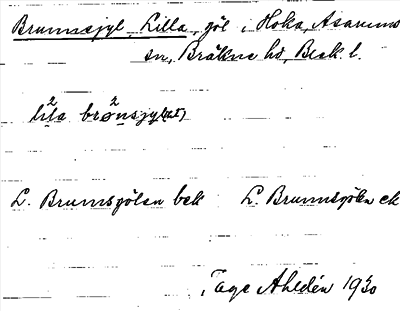 Brumsgyl, Lilla, göl i Hoka, Asarums
sn, Bräkne hd, Blek. l.
lila brønsjyl(et)
L. Brumsgölen bek L. Brumsgölen ek
Tage Ahldén 1930